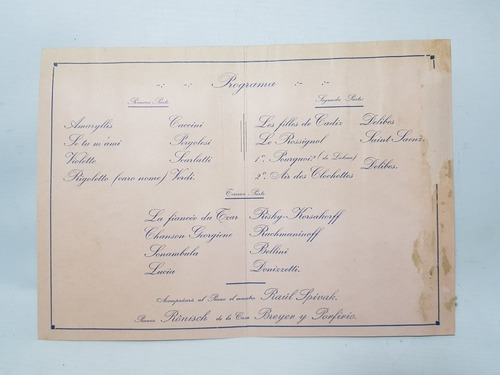 Programa
Primera Parte
Amaryllis Caccini
Se tu m'ami Pergolesi
Violette Scarlatti
Rigoletto (caro nome) Verdi.
Segunda Parte
Les filles de Cadiz Delibes
Le Rossignol Saint-Saenz.
1º Pourquoi? (de Lakmé)
2º Air des Clochettes Delibes.
Tercera Parte
La fiancée du Tzar Risky-Korsakoff
Chanson Georgiene Rachmaninoff
Sonambula Bellini
Lucia Donizzetti.
Acompañará al Piano el maestro Raúl Spivak.
Piano Rönisch de la Casa Breyer y Porfirio.